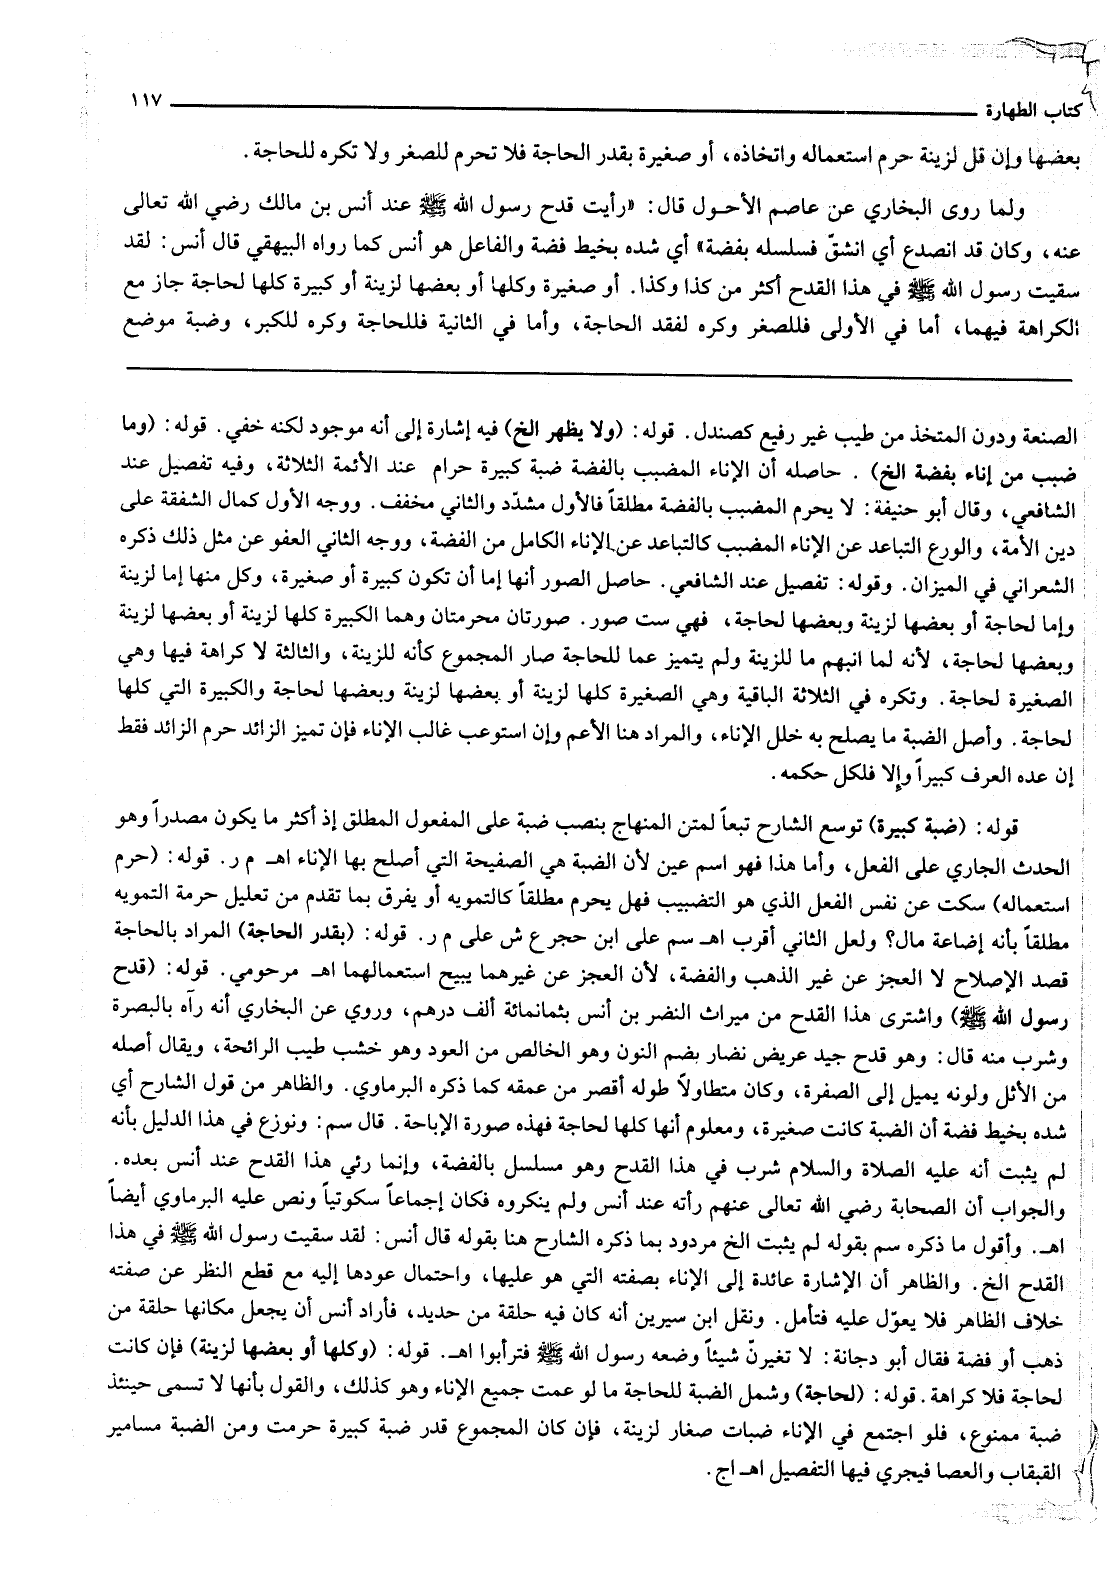 كتاب الطهارة ١١٧
بعضها وإن قل لزينة حرم استعماله واتخاذه، أو صغيرة بقدر الحاجة فلا تحرم للصغر ولا تكره للحاجة.
ولما روى البخاري عن عاصم الأحول قال: «رأيت قدح رسول الله ﷺ عند أنس بن مالك رضي الله تعالى
عنه، وكان قد انصدع أي انشقّ فسلسله بفضة» أي شده بخيط فضة والفاعل هو أنس كما رواه البيهقي قال أنس: لقد
سقيت رسول الله ﷺ في هذا القدح أكثر من كذا وكذا. أو صغيرة وكلها أو بعضها لزينة أو كبيرة كلها لحاجة جاز مع
الكراهة فيهما، أما في الأولى فللصغر وكره لفقد الحاجة، وأما في الثانية فللحاجة وكره للكبر، وضبة موضع
الصنعة ودون المتخذ من طيب غير رفيع كصندل. قوله: (ولا يظهر الخ) فيه إشارة إلى أنه موجود لكنه خفي. قوله: (وما
ضبب من إناء بفضة الخ) . حاصله أن الإناء المضبب بالفضة ضبة كبيرة حرام عند الأئمة الثلاثة، وفيه تفصيل عند
الشافعي، وقال أبو حنيفة: لا يحرم المضبب بالفضة مطلقاً فالأول مشدّد والثاني مخفف. ووجه الأول كمال الشفقة على
دين الأمة، والورع التباعد عن الإناء المضبب كالتباعد عن الإناء الكامل من الفضة، ووجه الثاني العفو عن مثل ذلك ذكره
الشعراني في الميزان. وقوله: تفصيل عند الشافعي. حاصل الصور أنها إما أن تكون كبيرة أو صغيرة، وكل منها إما لزينة
وإما لحاجة أو بعضها لزينة وبعضها لحاجة، فهي ست صور. صورتان محرمتان وهما الكبيرة كلها لزينة أو بعضها لزينة
وبعضها لحاجة، لأنه لما انبهم ما للزينة ولم يتميز عما للحاجة صار المجموع كأنه للزينة، والثالثة لا كراهة فيها وهي
الصغيرة لحاجة. وتكره في الثلاثة الباقية وهي الصغيرة كلها لزينة أو بعضها لزينة وبعضها لحاجة والكبيرة التي كلها
لحاجة. وأصل الضبة ما يصلح به خلل الإناء، والمراد هنا الأعم وإن استوعب غالب الإناء فإن تميز الزائد حرم الزائد فقط
إن عده العرف كبيراً وإلا فلكل حكمه.
قوله: (ضبة كبيرة) توسع الشارح تبعاً لمتن المنهاج بنصب ضبة على المفعول المطلق إذ أكثر ما يكون مصدراً وهو
الحدث الجاري على الفعل، وأما هذا فهو اسم عين لأن الضبة هي الصفيحة التي أصلح بها الإناء اهـ م ر. قوله: (حرم
استعماله) سكت عن نفس الفعل الذي هو التضبيب فهل يحرم مطلقاً كالتمويه أو يفرق بما تقدم من تعليل حرمة التمويه
مطلقاً بأنه إضاعة مال؟ ولعل الثاني أقرب اهـ سم على ابن حجر ع ش على م ر. قوله: (بقدر الحاجة) المراد بالحاجة
قصد الإصلاح لا العجز عن غير الذهب والفضة، لأن العجز عن غيرهما يبيح استعمالهما اهـ مرحومي. قوله: (قدح
رسول الله ﷺ) واشترى هذا القدح من ميراث النضر بن أنس بثمانمائة ألف درهم، وروي عن البخاري أنه رآه بالبصرة
وشرب منه قال: وهو قدح جيد عريض نضار بضم النون وهو الخالص من العود وهو خشب طيب الرائحة، ويقال أصله
من الأثل ولونه يميل إلى الصفرة، وكان متطاولاً طوله أقصر من عمقه كما ذكره البرماوي. والظاهر من قول الشارح أي
شده بخيط فضة أن الضبة كانت صغيرة، ومعلوم أنها كلها لحاجة فهذه صورة الإباحة. قال سم: ونوزع في هذا الدليل بأنه
لم يثبت أنه عليه الصلاة والسلام شرب في هذا القدح وهو مسلسل بالفضة، وإنما رئي هذا القدح عند أنس بعده.
والجواب أن الصحابة رضي الله تعالى عنهم رأته عند أنس ولم ينكروه فكان إجماعاً سكوتياً ونص عليه البرماوي أيضاً
اهـ. وأقول ما ذكره سم بقوله لم يثبت الخ مردود بما ذكره الشارح هنا بقوله قال أنس: لقد سقيت رسول الله ﷺ في هذا
القدح الخ. والظاهر أن الإشارة عائدة إلى الإناء بصفته التي هو عليها، واحتمال عودها إليه مع قطع النظر عن صفته
خلاف الظاهر فلا يعوّل عليه فتأمل. ونقل ابن سيرين أنه كان فيه حلقة من حديد، فأراد أنس أن يجعل مكانها حلقة من
ذهب أو فضة فقال أبو دجانة: لا تغيرنّ شيئاً وضعه رسول الله ﷺ فترأبوا اهـ. قوله: (وكلها أو بعضها لزينة) فإن كانت
لحاجة فلا كراهة. قوله: (لحاجة) وشمل الضبة للحاجة ما لو عمت جميع الإناء وهو كذلك، والقول بأنها لا تسمى حينئذ
ضبة ممنوع، فلو اجتمع في الإناء ضبات صغار لزينة، فإن كان المجموع قدر ضبة كبيرة حرمت ومن الضبة مسامير
القبقاب والعصا فيجري فيها التفصيل اهـ اج.